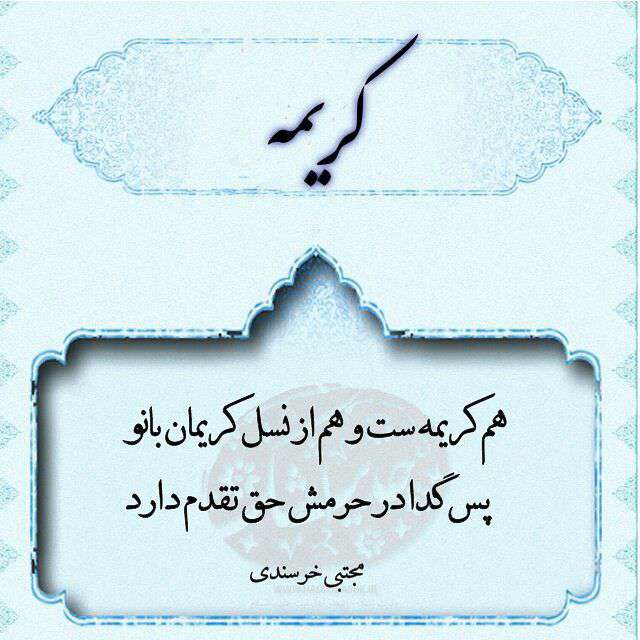 کریمه
هم کریمه ست و هم از نسل کریمان بانو
پس گدا در حرمش حق تقدم دارد
مجتبی خرسندی